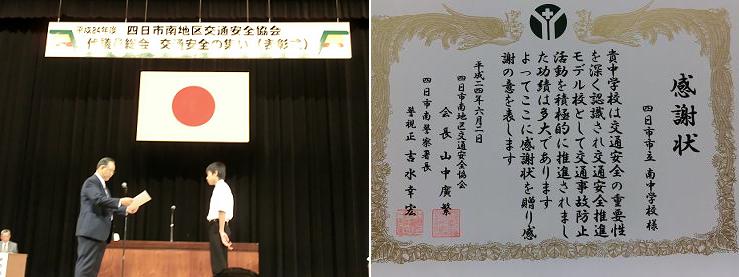 平成24年度 四日市南地区交通安全協会
代議員総会 交通安全の集い(表彰式)
感謝状
四日市市立 南中学校様
貴中学校は交通安全の重要性
を深く認識され交通安全推進
モデル校として交通事故防止
活動を積極的に推進されまし
た功績は多大であります
よってここに感謝状を贈り感
謝の意を表します
平成二四年六月二日
四日市南地区交通安全協会
会長 山中廣繁
四日市南警察署長
警視正 吉水幸宏